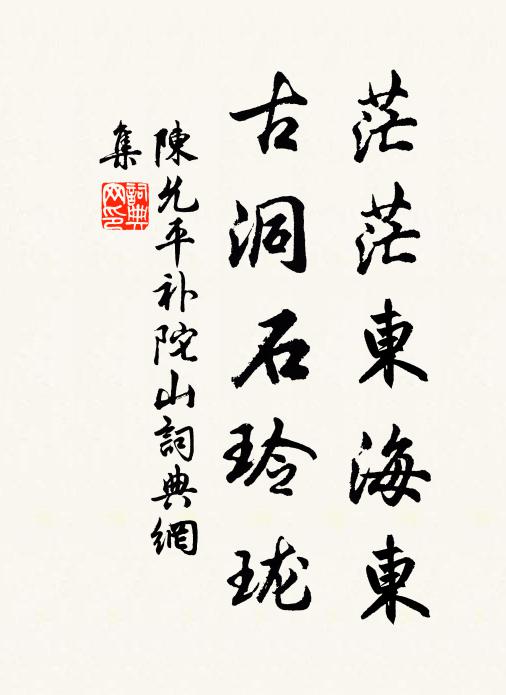 茫茫東海東
古洞石玲珑
陳允平补陀山詞典網
集
詞典网印